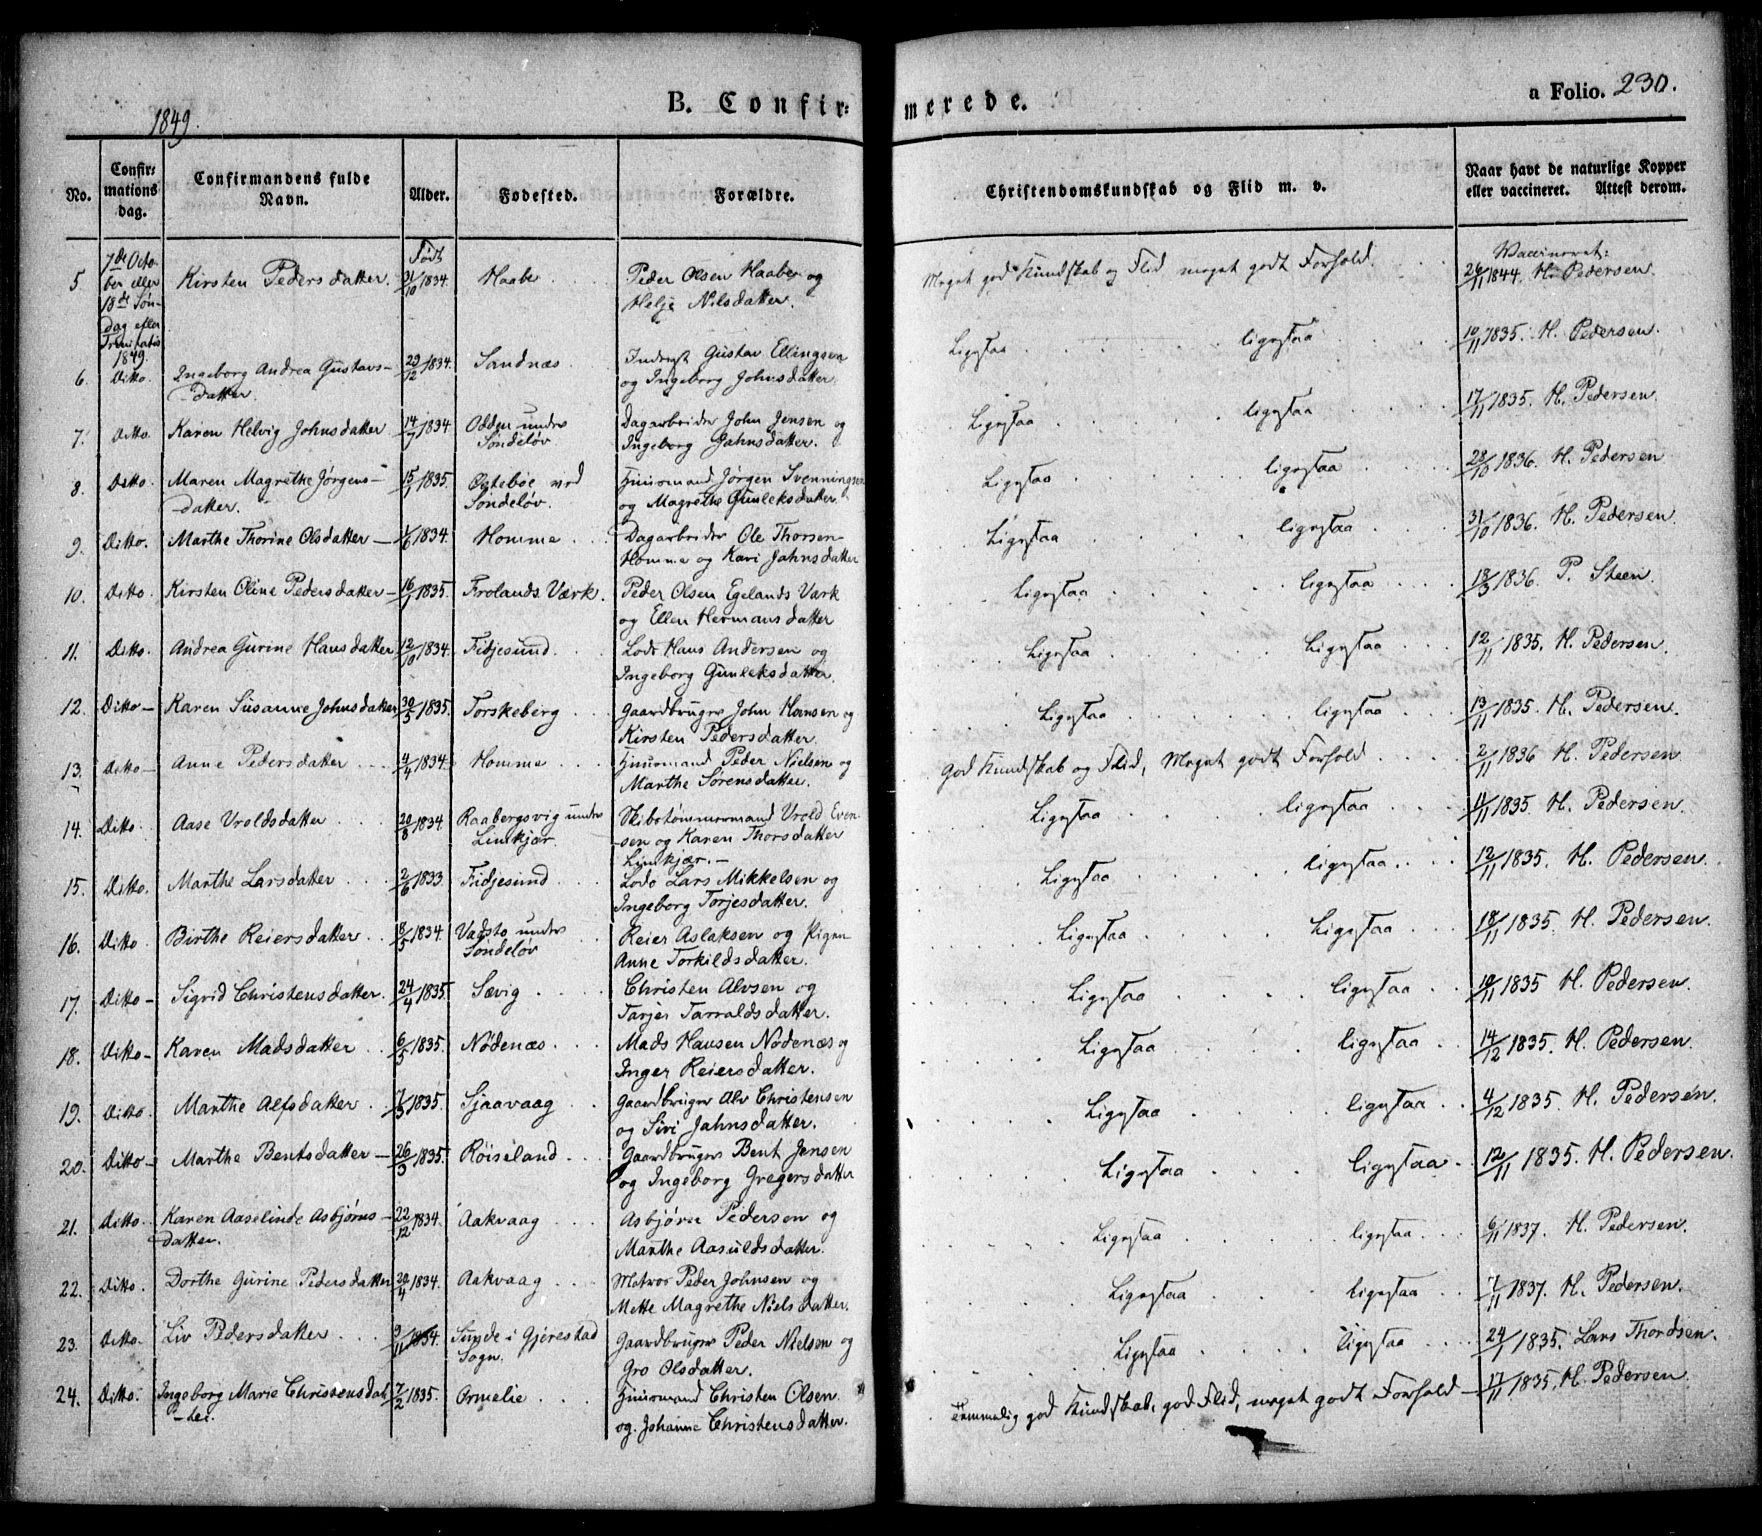 1849.
B. Confirmerede.
a Folio. 230.
No. Confirmations dag. Confirmandens fulde Navn. Alder. Fødested. Forældre. Christendomskundskab og Flid m. v. Naar havt de naturlige Kopper eller vaccineret. Attest derom.
5 7de Octo- Kirsten Pedersdatter Født 31/10 1834. Haabe Peder Olsen Haabe og Meget god Kundskab og Flid, meget godt Forhold. Vaccineret: 26/11 1844. H. Pedersen.
ber eller Helje Nilsdatter.
18de Søn-
dag efter
Trinitatis
1849.
6. Ditto. Ingeborg Andrea Gustavs- 29/12 1834. Sandnæs Inderst Gustav Ellingsen Ligesaa ligesaa 10/11 1835. H. Pedersen.
datter. og Ingeborg Johnsdatter.
7. Ditto Karen Helvig Johnsdatter 14/7 1834 Odden under Dagarbeider John Jensen og Ligesaa ligesaa 17/11 1835. H. Pedersen.
Søndeløv Ingeborg Jahnsdatter.
8. Ditto Maren Magrethe Jørgens- 15/1 1835. Østebøe ved Huusmand Jørgen Svenningsen Ligesaa ligesaa 28/10 1836. H. Pedersen
datter. Søndeløv. og Magrethe Gunleksdatter.
9. Ditto. Marthe Thorine Olsdatter 1/6 1834. Homme Dagarbeider Ole Thorsen Ligesaa ligesaa 31/10 1836. H. Pedersen
Homme og Kari Jahnsdatter
10. Ditto. Kirsten Oline Pedersdatter 16/1 1835. Frolands Værk. Peder Olsen Egelands Værk Ligesaa ligesaa 18/3 1836. P. Steen.
og Ellen Hermansdatter
11. Ditto Andrea Gurine Hansdatter 12/10 1834. Fidjesund Lods Hans Andersen og Ligesaa Ligesaa 12/11 1835. H. Pedersen.
Ingeborg Gunleksdatter.
12. Ditto Karen Susanne Johnsdatter 30/5 1835. Torskeberg Gaardbruger John Hansen og Ligesaa ligesaa 13/11 1835. H. Pedersen.
Kirsten Pedersdatter.
13. Ditto Anne Pedersdatter 9/4 1834. Homme Huusmand Peder Nielsen og God Kundskab og Flid, Meget godt Forhold 2/11 1836 H. Pedersen
Marthe Sørensdatter.
14. Ditto. Aase Vroldsdatter 20/8 1834. Raabergsvig under Skibstømmermand Vrold Even- Ligesaa ligesaa 11/11 1835. H. Pedersen
Limkjær. sen og Karen Thorsdatter
Limkjær.
15. Ditto. Marthe Larsdatter 2/6 1833. Fidjesund Lods Lars Mikkelsen og Ligesaa ligesaa 12/11 1835. H. Pedersen
Ingeborg Torjesdatter.
16. Ditto Birthe Reiersdatter 8/5 1834. under Reier Aslaksen og Pigen Ligesaa Ligesaa 18/11 1835. H. Pedersen.
Søndeløv Anne Torkildsdatter.
17. Ditto Sigrid Christensdatter. 24/4 1835 Sævig Christen Alvsen og Ligesaa ligesaa 10/11 1835 H. Pedersen.
Tarjer Tarraldsdatter.
18. Ditto Karen Madsdatter 6/5 1835. Nødenæs Mads Hansen Nødenæs og Ligesaa ligesaa 14/12 1835. H. Pedersen.
Inger Reiersdatter.
19. Ditto. Marthe Alfsdatter 1835. Sjaavaag Gaardbruger Alv Christensen Ligesaa ligesaa 4/12 1835. H. Pedersen.
og Siri Jahnsdatter.
20. Ditto Marthe Bentsdatter 26/3 1835. Røiseland Gaardbruger Bent Jensen Ligesaa ligesaa 12/11 1835. H. Pedersen.
og Ingeborg Gregersdatter
21. Ditto. Karen Aaselinde Asbjørns- 22/12 1834. Aakvaag Asbjørn Pedersen og Ligesaa ligesaa 6/11 1837. H. Pedersen.
datter. Marthe Aasuldsdatter.
22. Ditto. Dorthe Gurine Pedersdatter 20/4 1834. Aakvaag Matros Peder Johnsen og Ligesaa ligesaa 7/11 1837. H. Pedersen.
Mette Magrethe Nielsdatter.
23. Ditto. Liv Pedersdatter 9/11 1834. Sunde i Gjerestad Gaardbruger Peder Nielsen og Ligesaa ligesaa 24/1 1835. Lars Thordsen.
Sogn. Gro Olsdatter.
24. Ditto. Ingeborg Marie Christensdat- 7/2 1835. Ormelie Huusmand Christen Olsen Temmelig god Kundskab, god Flid, meget godt Forhold 17/11 1835. H. Pedersen
ter. og Johanne Christensdatter.